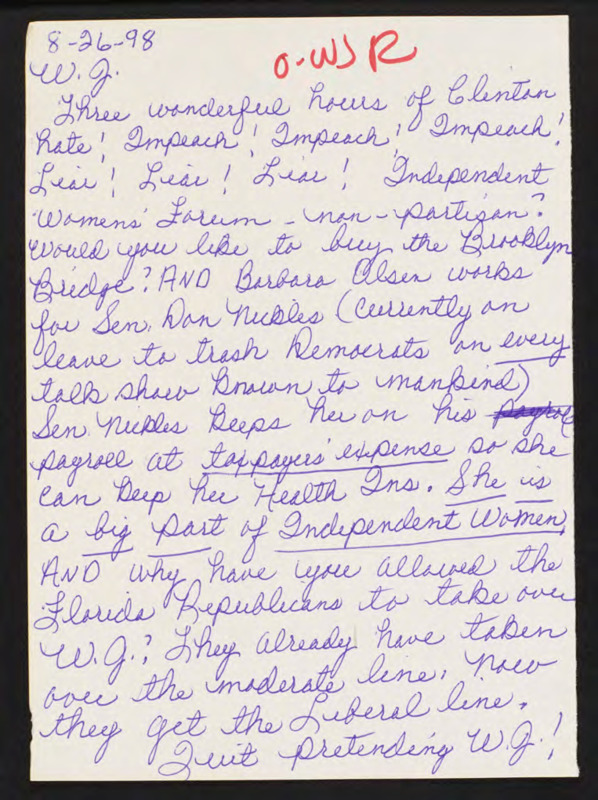 8-26-98
O-WJ R
W.J.
Three wonderful hours of Clinton
hate! Impeach! Impeach! Impeach!
Liar! Liar! Liar! Independent
Womens' Forum - non-partisan?
Would you like to buy the Brooklyn
Bridge? AND Barbara Olsen works
for Sen. Don Nickles (currently on
leave to trash Democrats on every
talk show known to mankind)
Sen. Nickles keeps her on his payroll
payroll at taxpayers' expense so she
can keep her Health Ins. She is
a big part of Independent Women,
AND why have you allowed the
Florida Republicans to take over
W.J.? They already have taken
over the moderate line, now
they get the Liberal line.
Quit pretending W.J.!